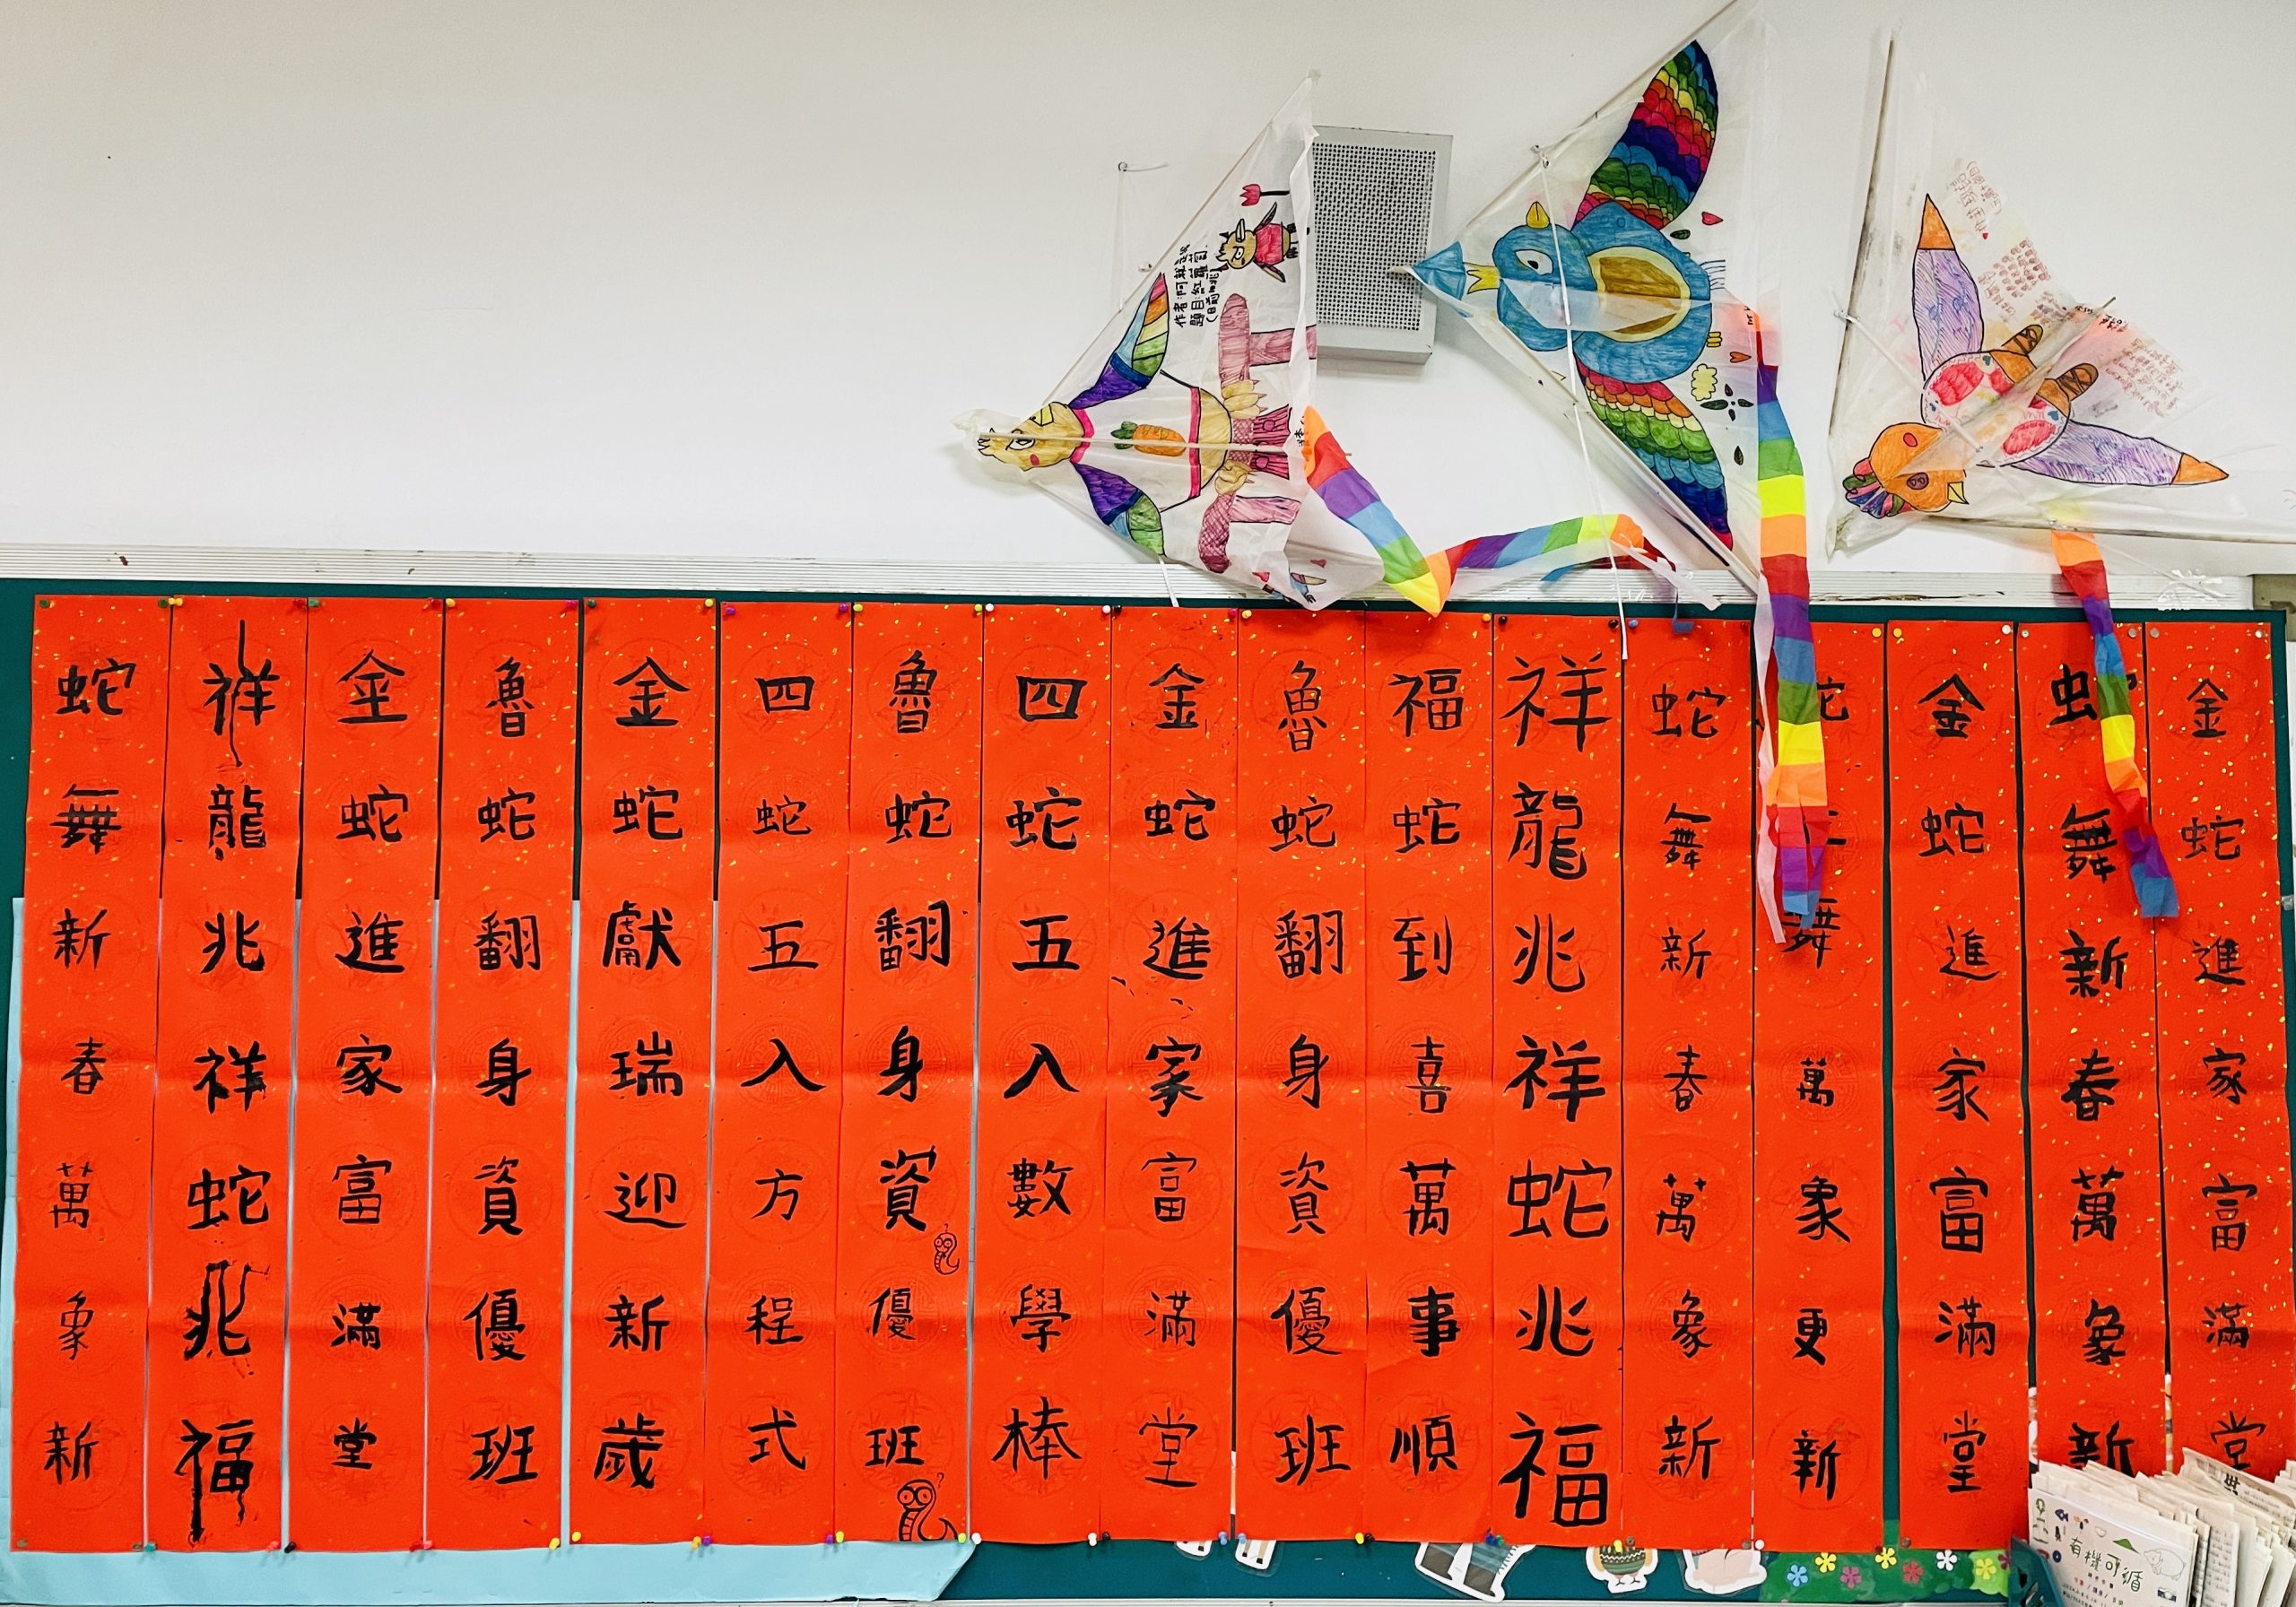 蛇舞新春萬象新
祥龍兆祥蛇兆福
金蛇進家富滿堂
魯蛇翻身資優班
金蛇獻瑞迎新歲
四蛇五入方程式
魯蛇翻身資優班
四蛇五入數學棒
金蛇進家富滿堂
魯蛇翻身資優班
福蛇到喜萬事順
祥龍兆祥蛇兆福
蛇舞新春萬象新
蛇
舞萬象更新
金蛇進家富滿堂
舞新春萬象新
金蛇進家富滿堂
作者:阿
題目:紅蘿蔔
有機可循